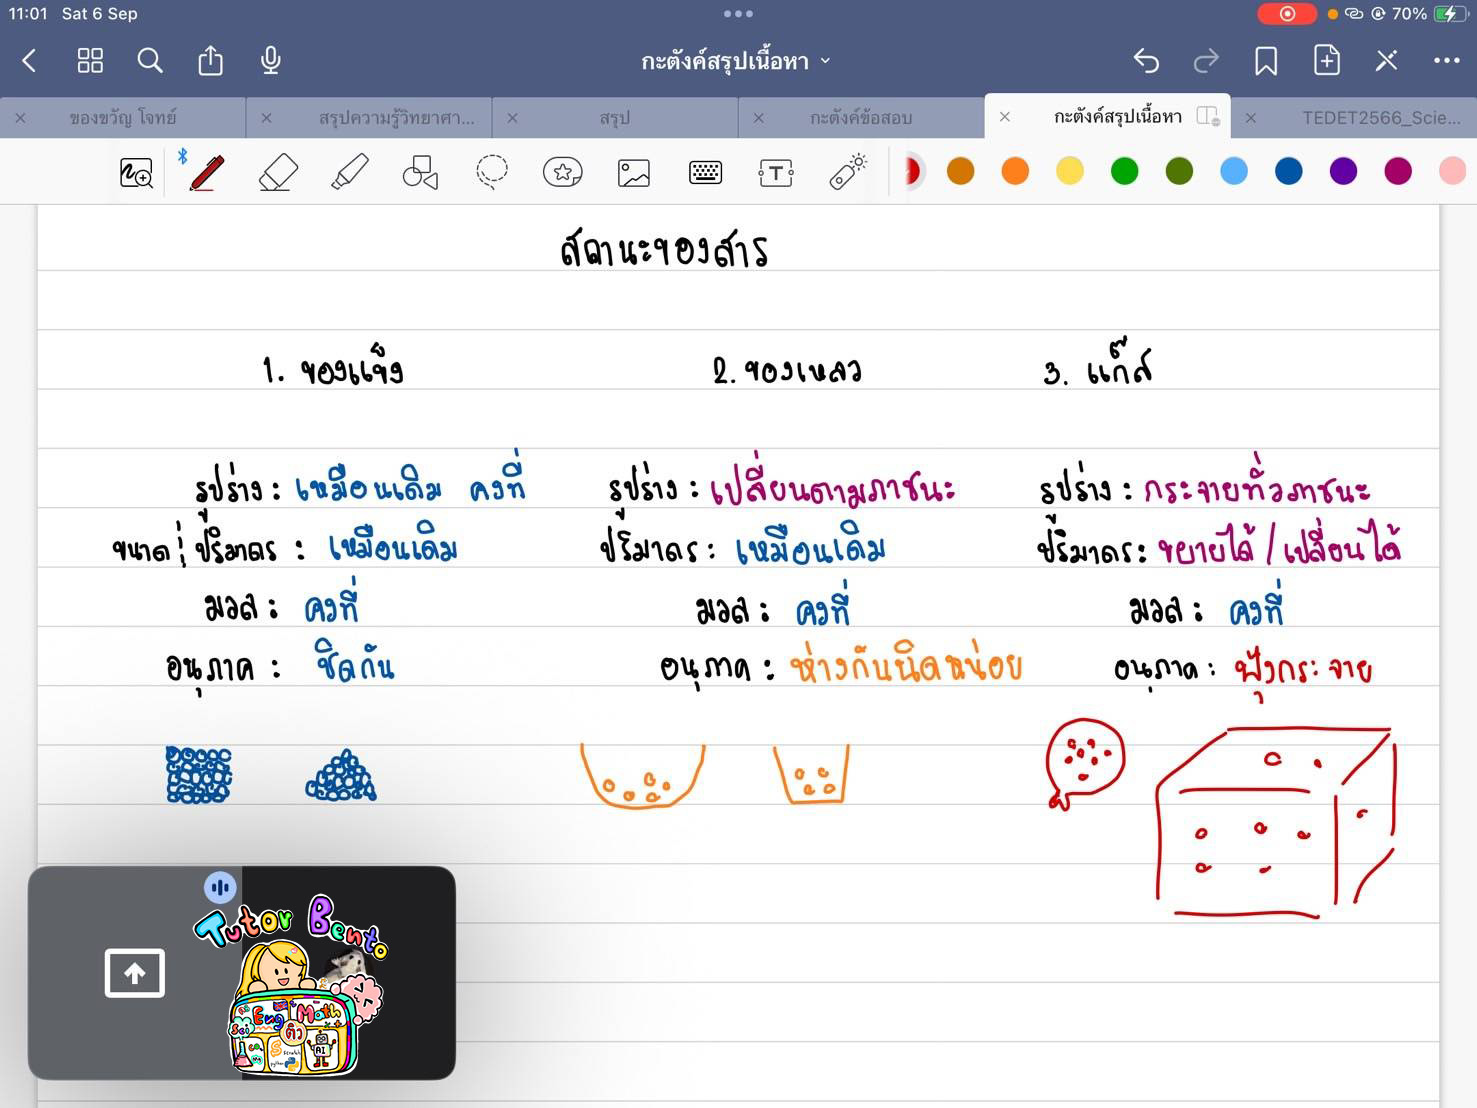 11:01 Sat 6 Sep
70%
กะตังค์สรุปเนื้อหา
ของขวัญ โจทย์
สรุปความรู้วิทยาศา...
สรุป
กะตังค์ข้อสอบ
กะตังค์สรุปเนื้อหา
TEDET2566_Scie...
สถานะของสาร
1. ของแข็ง 2. ของเหลว 3. แก๊ส
รูปร่าง : เหมือนเดิม คงที่ รูปร่าง : เปลี่ยนตามภาชนะ รูปร่าง : กระจายทั่วภาชนะ
ขนาด/ปริมาตร : เหมือนเดิม ปริมาตร : เหมือนเดิม ปริมาตร : ขยายได้ / เปลี่ยนได้
มวล : คงที่ มวล : คงที่ มวล : คงที่
อนุภาค : ชิดกัน อนุภาค : ห่างกันนิดหน่อย อนุภาค : ฟุ้งกระจาย
Tutor Bento
Eng Math
Sci ติว
Scratch
AI
python